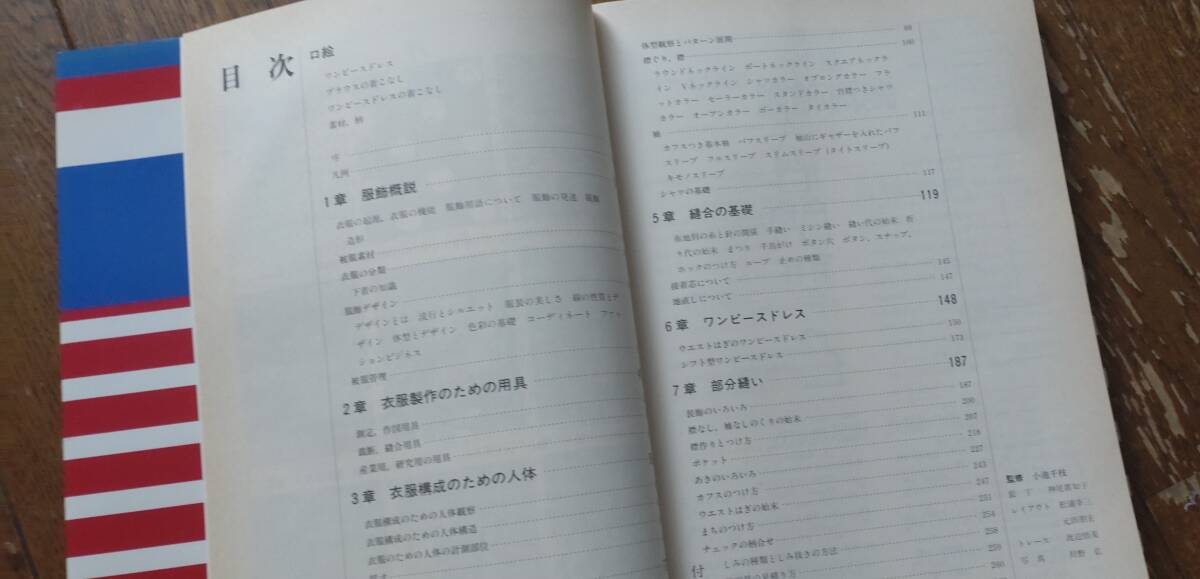 目次
口絵
ワンピースドレス
ブラウスの着こなし
ワンピースドレスの着こなし
素材、柄
序
凡例
1章 服飾概説
衣服の起源、衣服の機能 服飾用語について 服飾の発達 服飾
造形
被服素材
衣服の分類
下着の知識
服飾デザイン
デザインとは 流行とシルエット 服装の美しさ 線の性質とデ
ザイン 体型とデザイン 色彩の基礎 コーディネート ファッ
ションビジネス
被服管理
2章 衣服製作のための用具
測定、作図用具
裁断、縫合用具
産業用、研究用の用具
3章 衣服構成のための人体
衣服構成のための人体観察
衣服構成のための人体構造
衣服のための人体の計測部位
体型観察とパターン展開 98
襟ぐり、襟 100
ラウンドネックライン ボートネックライン スクエアネックラ
イン Vネックライン シャツカラー オブロングカラー フラ
ットカラー セーラーカラー スタンドカラー 台襟つきシャツ
カラー オープンカラー ボーカラー タイカラー
袖 111
カフスつき基本袖 パフスリーブ 袖山にギャザーを入れたパフ
スリーブ フルスリーブ スリムスリーブ(タイトスリーブ)
キモノスリーブ
シャツの基礎 117
5章 縫合の基礎 119
布地別の糸と針の関係 手縫い ミシン縫い 縫い代の始末 折
り代の始末 まつり 千鳥がけ ボタン穴 ボタン、スナップ、
ホックのつけ方 ループ 止めの種類
接着芯について 145
地直しについて 147
6章 ワンピースドレス 148
ウエストはぎのワンピースドレス 150
シフト型ワンピースドレス 173
7章 部分縫い 187
装飾のいろいろ 187
襟なし、袖なしのくりの始末 200
襟作りとつけ方 207
ポケット 218
あきのいろいろ 227
カフスのつけ方 243
ウエストはぎの始末 247
まちのつけ方 251
チェックの柄合せ 254
付
しみの種類としみ抜きの方法 258
259
260
監修 小池千枝
装丁 神尾喜知子
レイアウト 松浦幸三
トレース 渡辺悠友
写真 狩野弘